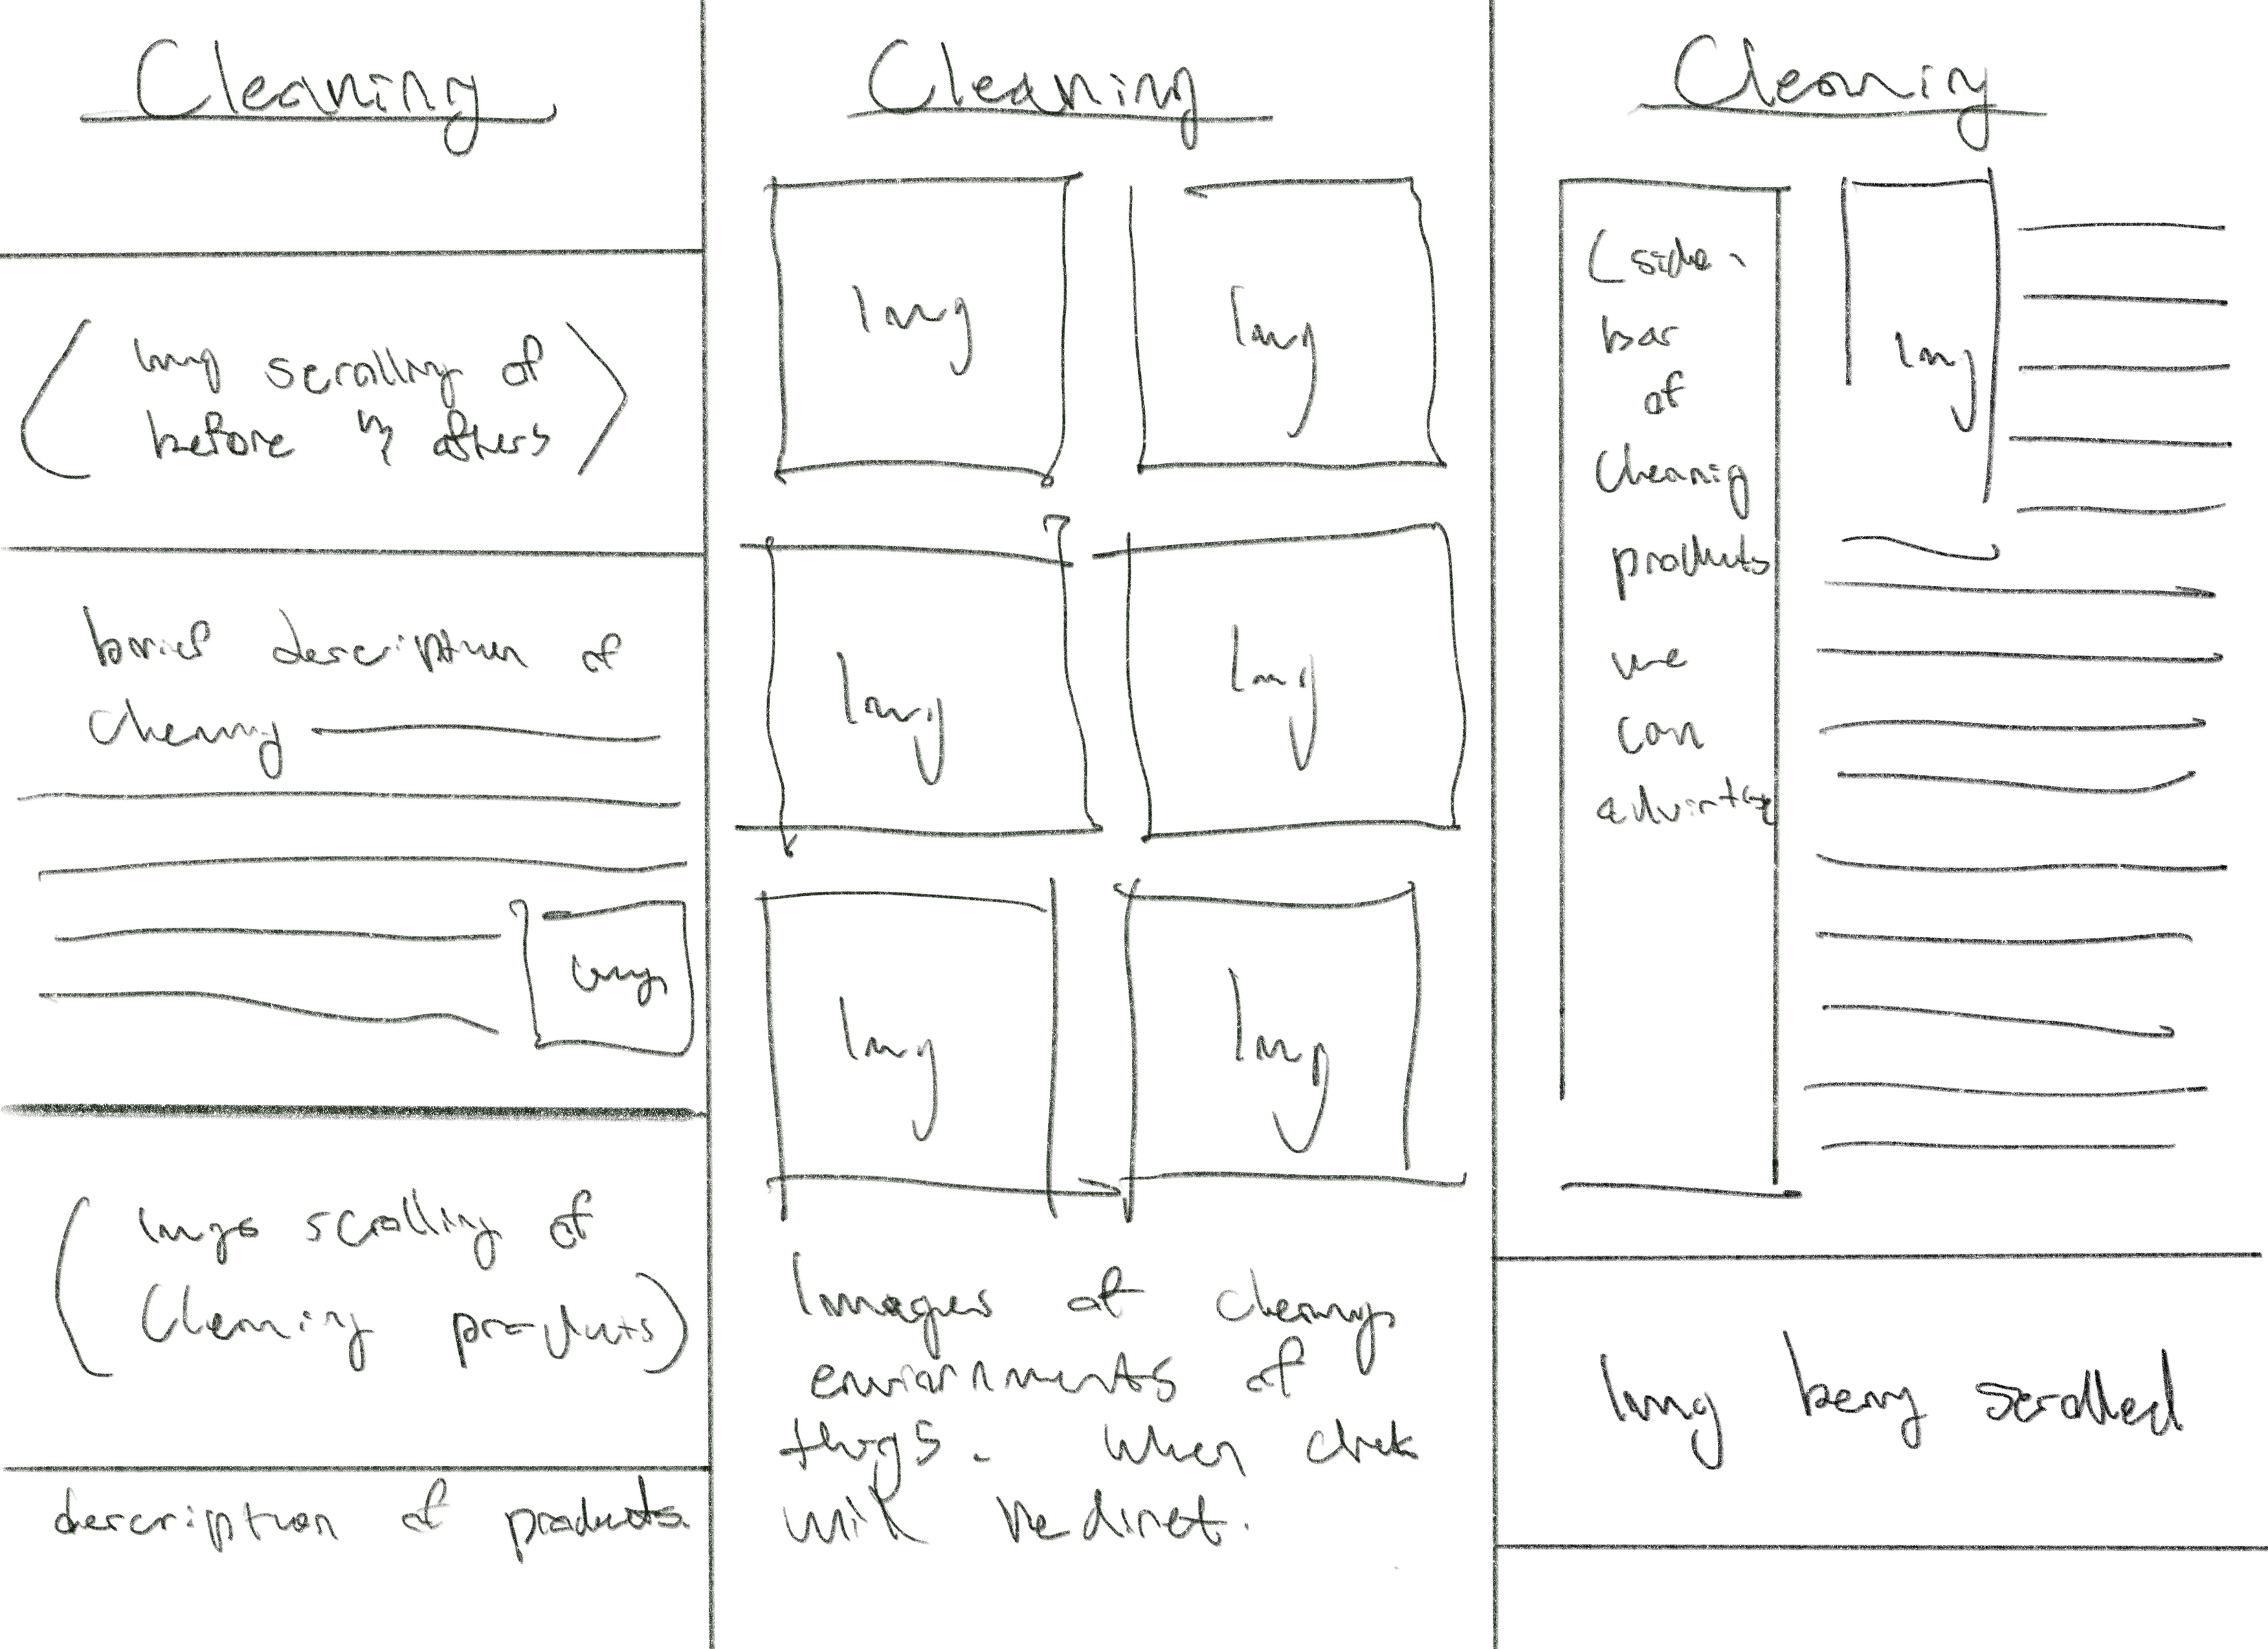 Cleaning
Img scrolling of
before & afters
brief description of
cleaning
img
Imgs scrolling of
Cleaning products
description of products
Cleaning
Img
Img
Img
Img
Img
Img
Images of cleaning
enviornments of
things. When click
will redirect.
Cleaning
(side-
bar
of
cleaning
products
we
can
Img
Img being scrolled